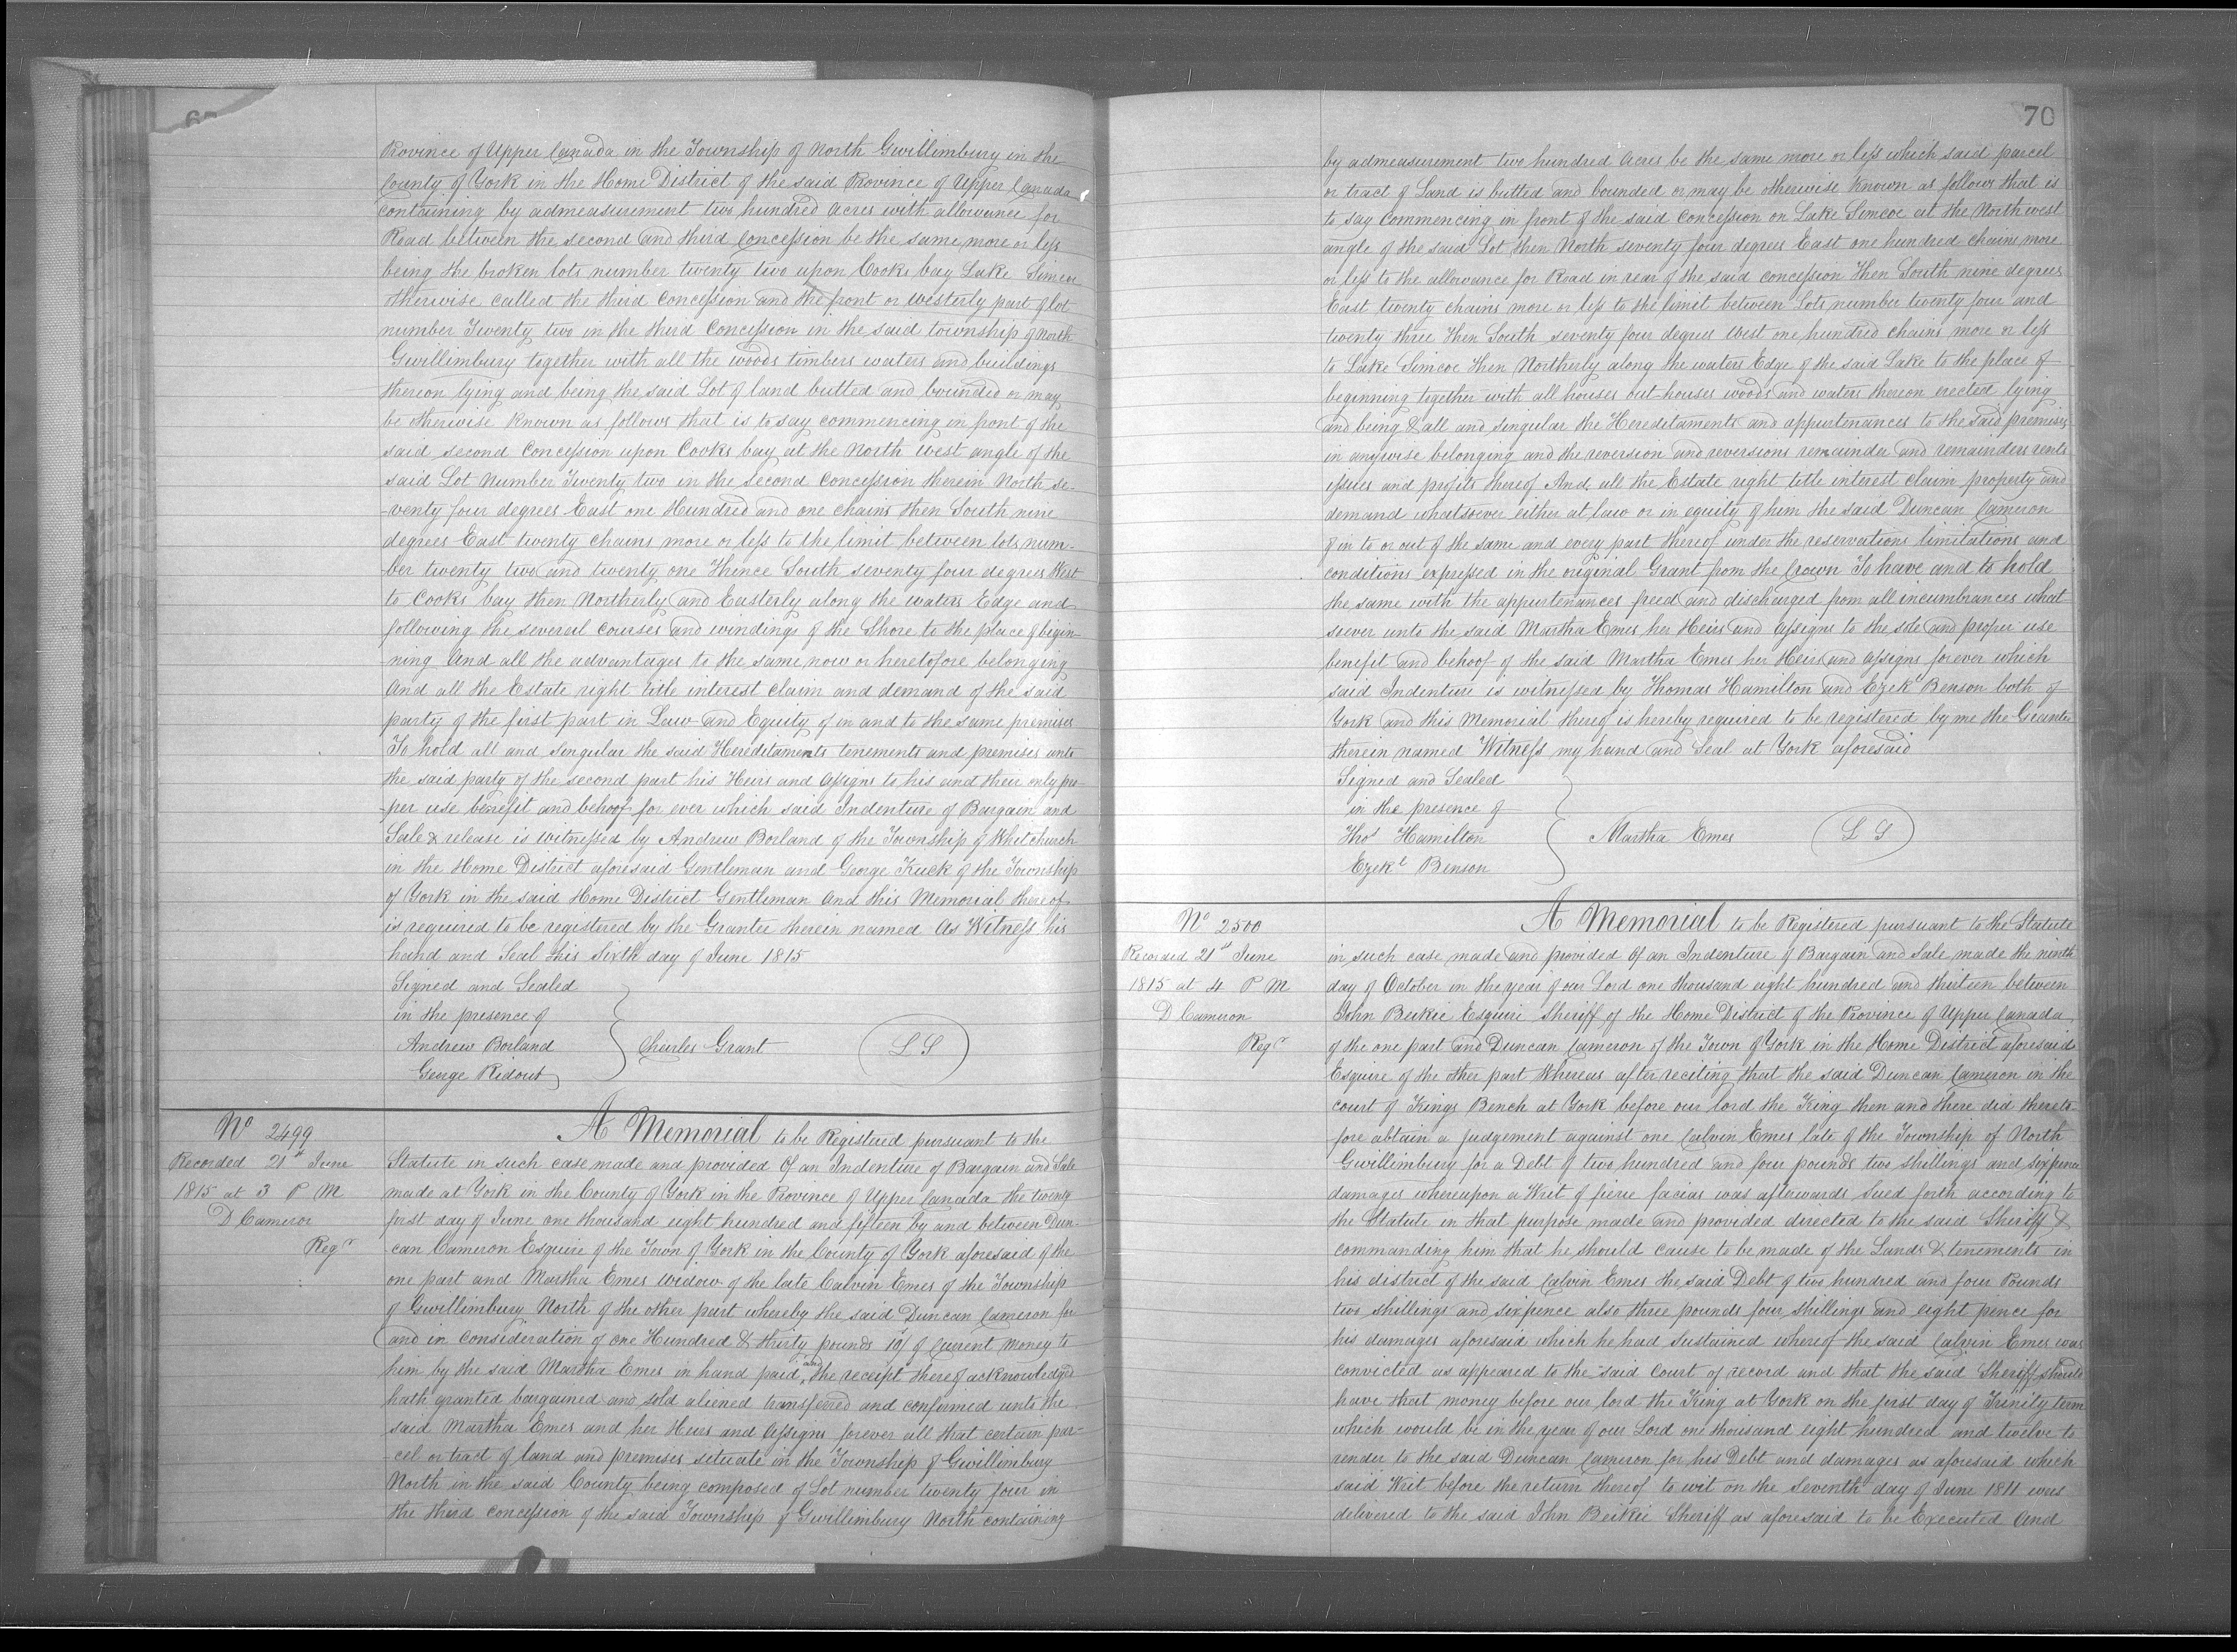 Province of Upper Canada in the Township of North Gwillimbury in the
County of York in the Home District of the said Province of Upper Canada
containing by admeasurement two hundred acres with allowance for
Road between the second and third concession be the same more or less
being the broken lots number twenty two upon Cooks bay Lake Simcoe
otherwise called the third Concession and the front or westerly part of lot
number Twenty two in the third Concession in the said township of North
Gwillimbury together with all the woods timbers waters and buildings
thereon lying and being the said Lot of land butted and bounded or may
be otherwise known as follows that is to say commencing in front of the
said second Concession upon Cooks bay at the North west angle of the
said Lot Number Twenty two in the second Concession therein North se-
-venty four degrees East one Hundred and one chains then South nine
degrees East twenty chains more or less to the limit between lots num-
-ber twenty two and twenty one Thence South seventy four degrees West
to Cooks bay then Northerly and Easterly along the waters Edge and
following the several courses and windings of the Shore to the place of begin-
-ning And all the advantages to the same now or heretofore belonging
And all the Estate right title interest claim and demand of the said
party of the first part in Law and Equity of in and to the same premises
To hold all and singular the said Hereditaments tenements and premises unto
the said party of the second part his Heirs and Assigns to his and their only pro-
-per use benefit and behoof for ever which said Indenture of Bargain and
Sale & release is witnessed by Andrew Borland of the Township of Whitchurch
in the Home District aforesaid Gentleman and George Kuck of the Township
of York in the said Home District Gentleman And this Memorial thereof
is required to be registered by the Grantee therein named As Witness his
hand and Seal this Sixth day of June 1815
Signed and Sealed
in the presence of
Andrew Borland Charles Grant L S
George Ridout
No 2499
Recorded 21st June
1815 at 3 P M
D Cameron
Regr
A Memorial to be Registered pursuant to the
Statute in such case made and provided Of an Indenture of Bargain and Sale
made at York in the County of York in the Province of Upper Canada the twenty
first day of June one thousand eight hundred and fifteen by and between Dun-
-can Cameron Esquire of the Town of York in the County of York aforesaid of the
one part and Martha Emes widow of the late Calvin Emes of the Township
of Gwillimbury North of the other part whereby the said Duncan Cameron for
and in consideration of one Hundred & thirty pounds 10/ of Current money to
him by the said Martha Emes in hand paid, and the receipt thereof acknowledged
hath granted bargained and sold aliened transferred and confirmed unto the
said Martha Emes and her Heirs and Assigns forever all that certain par-
-cel or tract of land and premises situate in the Township of Gwillimbury
North in the said County being composed of Lot number twenty four in
the third concession of the said Township of Gwillimbury North containing
70
by admeasurement two hundred Acres be the same more or less which said parcel
or tract of Land is butted and bounded or may be otherwise known as follows that is
to say Commencing in front of the said Concession on Lake Simcoe at the North west
angle of the said Lot then North seventy four degrees East one hundred chains more
or less to the allowance for Road in rear of the said concession Then South nine degrees
East twenty chains more or less to the limit between Lots number twenty four and
twenty three then South seventy four degrees West one hundred chains more or less
to Lake Simcoe Then Northerly along the waters Edge of the said Lake to the place of
beginning together with all houses out-houses woods and waters thereon erected lying
and being & all and singular the Hereditaments and appurtenances to the said premises
in anywise belonging and the reversion and reversions remainder and remainders rents
issues and profits thereof And all the Estate right title interest claim property and
demand whatsoever either at law or in equity of him the said Duncan Cameron
of in to or out of the same and every part thereof under the reservations limitations and
conditions expressed in the original Grant from the Crown To have and to hold
the same with the appurtenances freed and discharged from all incumbrances what
soever unto the said Martha Emes her Heirs and Assigns to the sole and proper use
benefit and behoof of the said Martha Emes her Heirs and Assigns forever which
said Indenture is witnessed by Thomas Hamilton and Ezekl Benson both of
York and this Memorial thereof is hereby required to be registered by me the Grantee
therein named Witness my hand and Seal at York aforesaid
Signed and Sealed
in the presence of
Thos Hamilton Martha Emes L S
Ezekl Benson
No 2500
Recorded 21st June
1815 at 4 P M
D Cameron
Regr
A Memorial to be Registered pursuant to the Statute
in such case made and provided Of an Indenture of Bargain and Sale made the ninth
day of October in the year of our Lord one thousand eight hundred and thirteen between
John Beikie Esquire Sheriff of the Home District of the Province of Upper Canada
of the one part and Duncan Cameron of the Town of York in the Home District aforesaid
Esquire of the other part Whereas after reciting that the said Duncan Cameron in the
court of Kings Bench at York before our lord the King then and there did thereto-
-fore obtain a judgement against one Calvin Emes late of the Township of North
Gwillimbury for a Debt of two hundred and four pounds two shillings and sixpence
damages whereupon a Writ of fierie facias was afterwards Sued forth according to
the Statute in that purpose made and provided directed to the said Sheriff &
commanding him that he should cause to be made of the Lands & tenements in
his district of the said Calvin Emes the said Debt of two hundred and four Pounds
two shillings and sixpence also three pounds four shillings and eight pence for
his damages aforesaid which he had sustained whereof the said Calvin Emes was
convicted as appeared to the said Court of record and that the said Sheriff should
have that money before our lord the King at York on the first day of Trinity term
which would be in the year of our Lord one thousand eight hundred and twelve to
render to the said Duncan Cameron for his Debt and damages as aforesaid which
said Writ before the return thereof to wit on the seventh day of June 1811 was
delivered to the said John Beikie Sheriff as aforesaid to be Executed And